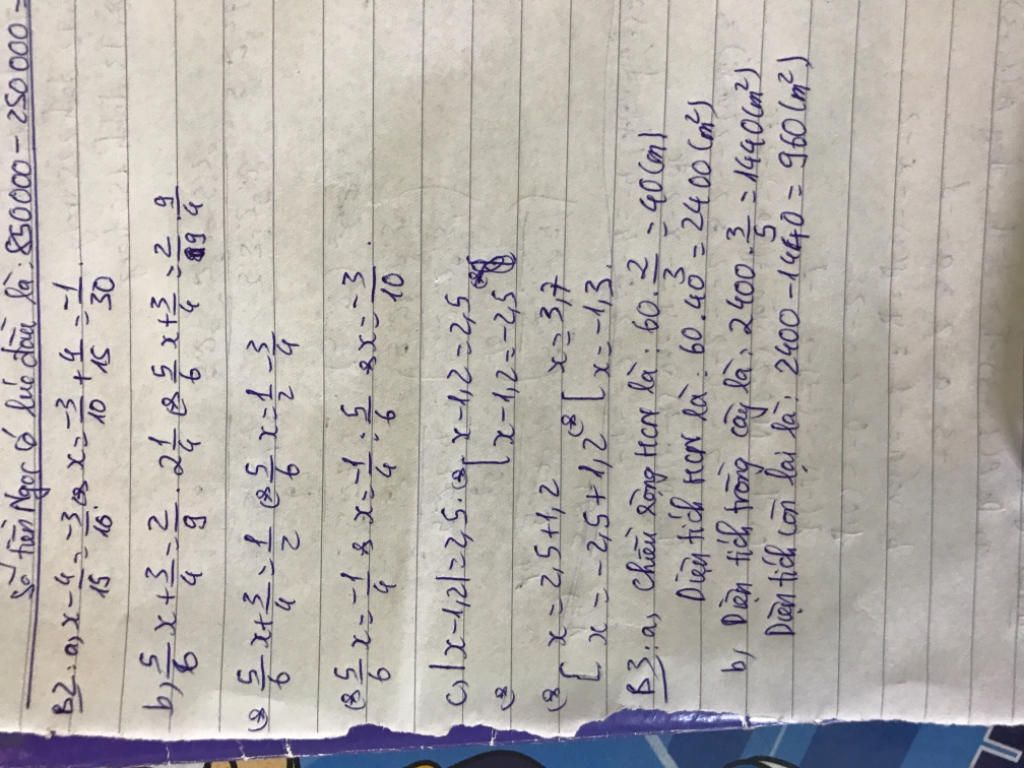 Số tiền Ngọc có lúc đầu là: 850000 - 250000 =
B2: a, x - 4/15 = -3/10 ⇔ x = -3/10 + 4/15 = -1/30
b, 5/6 x + 3/4 = 2/9 . 2 1/4 ⇔ 5/6 x + 3/4 = 2/9 . 9/4
⇔ 5/6 x + 3/4 = 1/2 ⇔ 5/6 x = 1/2 - 3/4
⇔ 5/6 x = -1/4 ⇔ x = -1/4 : 5/6 ⇔ x = -3/10.
c, |x - 1,2| = 2,5. ⇔ x - 1,2 = 2,5
⇔ [ x - 1,2 = -2,5
⇔ x = 2,5 + 1,2 x = 3,7
[ x = -2,5 + 1,2 ⇔ [ x = -1,3.
B3: a, Chiều rộng HCN là: 60 . 2/3 = 40 (m)
Diện tích HCN là: 60 . 40 = 2400 (m²)
b, Diện tích trồng cây là: 2400 . 3/5 = 1440 (m²)
Diện tích còn lại là: 2400 - 1440 = 960 (m²)